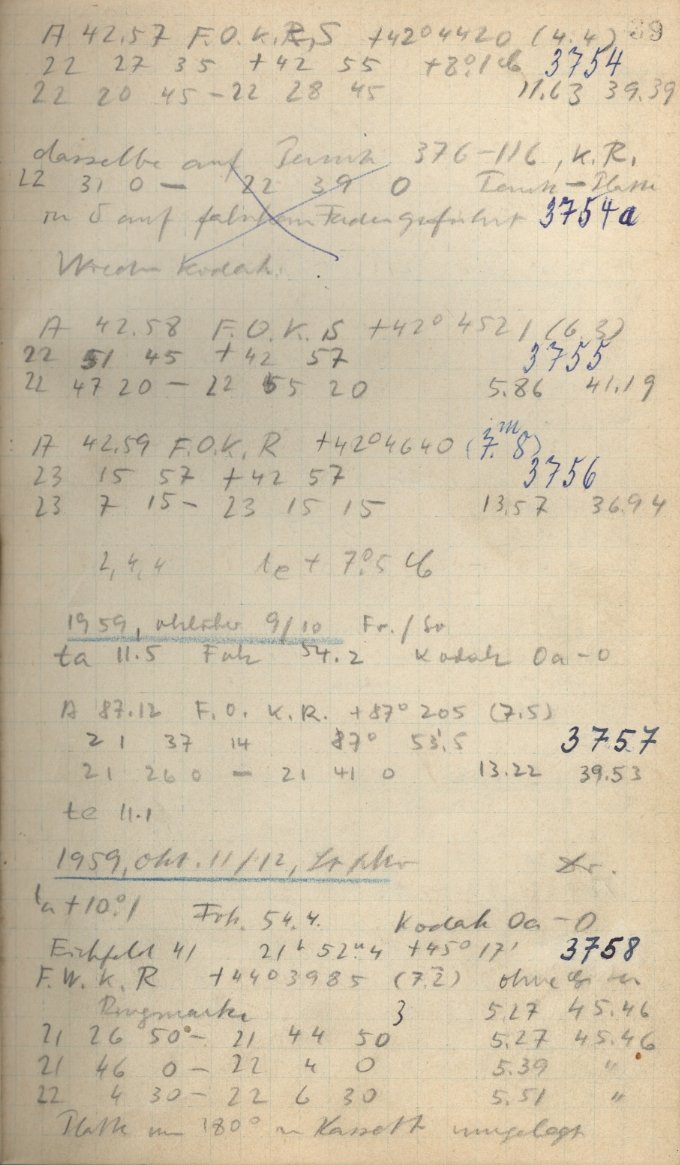 A 42.57 F.O.K.R,S +42°4420 (4.4) 39
22 27 35 +42 55 +8°1 3754
22 20 45 – 22 28 45 11.63 39.39
dasselbe auf 376–116, K.R.
22 31 0 – 22 39 0 Platte
in δ auf falschem Faden geführt 3754a
Wieder Kodak.
A 42.58 F.O.K.S +42° 4521 (6.3)
22 51 45 +42 57 3755
22 47 20 – 22 55 20 5.86 41.19
A 42.59 F.O.K.R +42°4640 (7.m8)
23 15 57 +42 57 3756
23 7 15 – 23 15 15 13.57 36.94
2,4,4 te + 7°.5
1959, Oktober 9/10 Fr./Sa
ta 11.5 Fok 54.2 Kodak Oa–O
A 87.12 F.O.K.R. +87° 205 (7.5)
21 37 14 87° 53'.5 3757
21 26 0 – 21 41 0 13.22 39.53
te 11.1
1959, Okt. 11/12,
ta +10°.1 Fok. 54.4. Kodak Oa–O
Eichfeld 41 21h 52m.4 +45° 17' 3758
F.W.K.R +44°3985 (7.2) ohne
Ringmarke 3 5.27 45.46
21 26 50 – 21 44 50 5.27 45.46
21 46 0 – 22 4 0 5.39 "
22 4 30 – 22 6 30 5.51 "
Platte um 180° in Kassette umgelegt